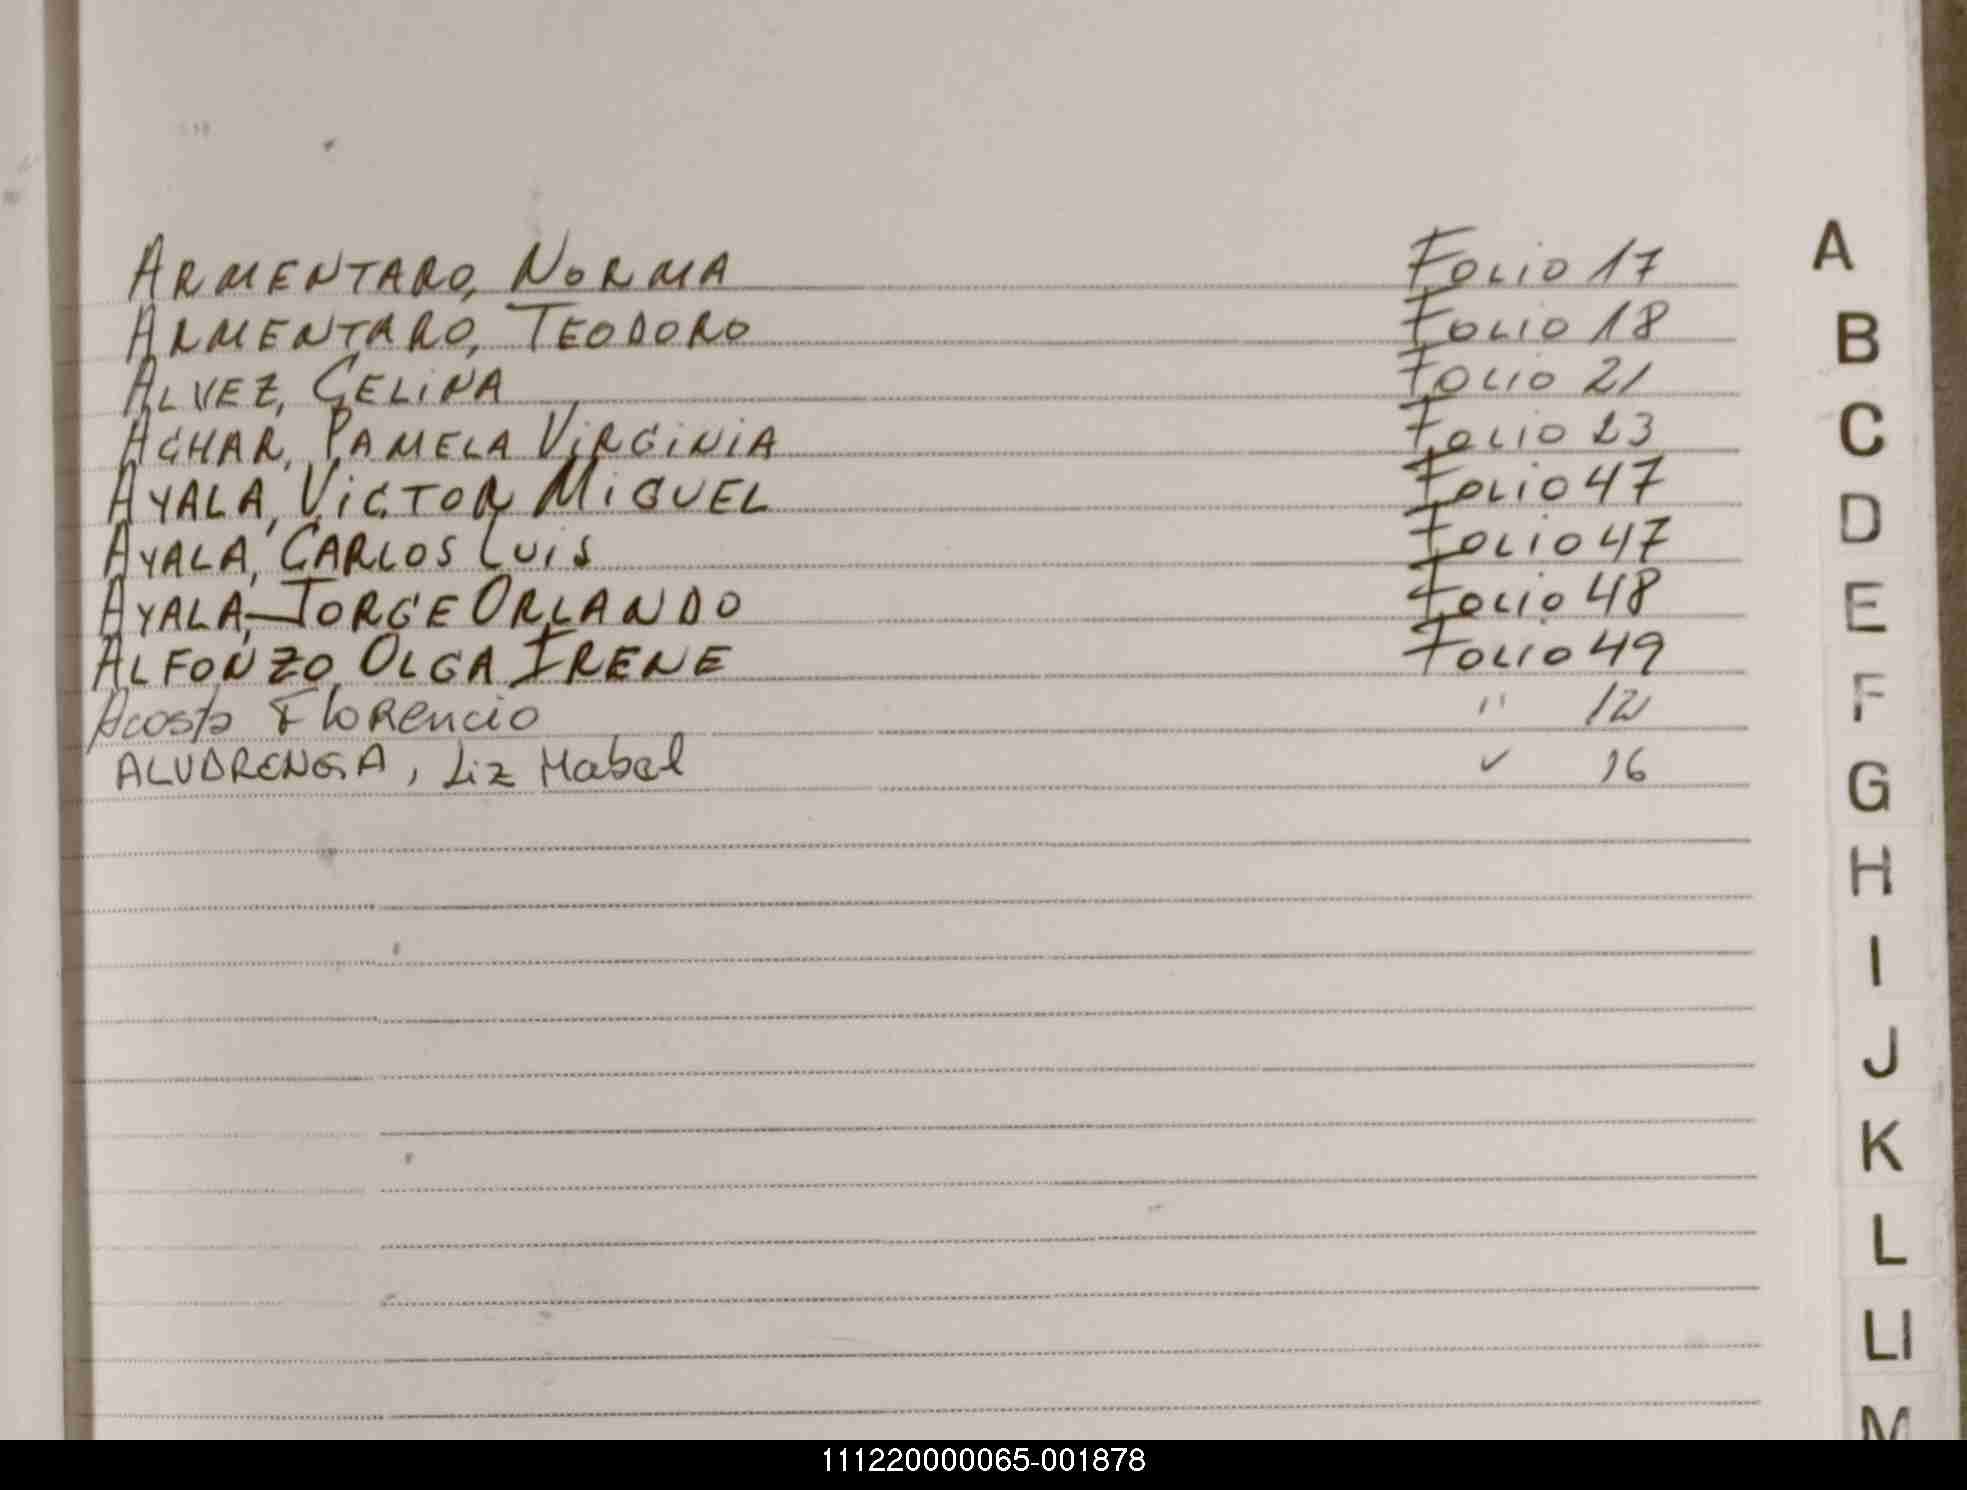 ARMENTARO, NORMA Folio 17
ARMENTARO, TEODORO Folio 18
ALVEZ, CELINA Folio 21
ACHAR, PAMELA VIRGINIA Folio 23
AYALA, VICTOR MIGUEL Folio 47
AYALA, CARLOS LUIS Folio 47
AYALA, JORGE ORLANDO Folio 48
ALFONZO, OLGA IRENE Folio 49
Acosta Florencio " 12
ALUDRENGA, Liz Mabel ✓ 16
A
B
C
D
E
F
G
H
I
J
K
L
Ll
M
111220000065-001878